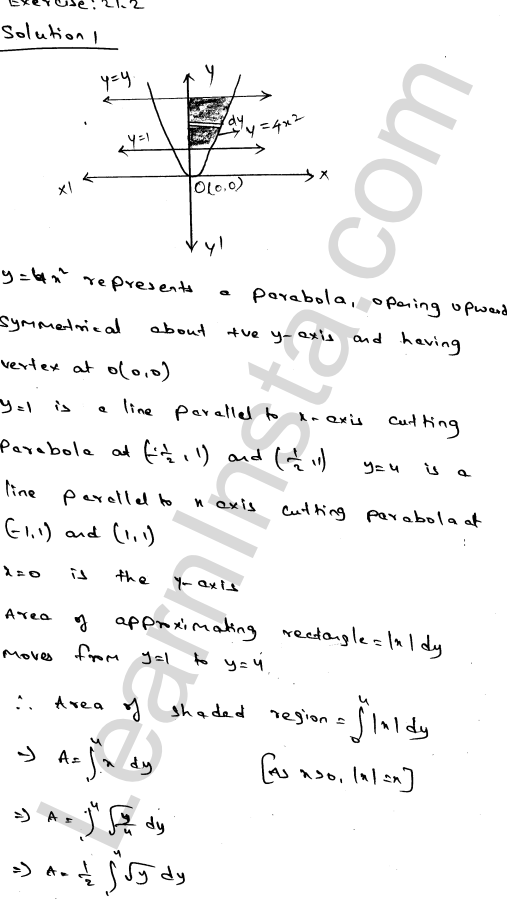 Exercise: 21.2
Solution 1
y=4
y
dy
y=4x²
y=1
x1
O(0,0)
x
y1
y=4x² represents a parabola, opening upward
symmetrical about +ve y-axis and having
vertex at o(0,0)
y=1 is a line parallel to x-axis cutting
Parabola at (-1/2, 1) and (1/2, 1) y=4 is a
line parallel to x axis cutting parabola at
(-1,1) and (1,1)
x=0 is the y-axis
Area of approximating rectangle = |x| dy
moves from y=1 to y=4
∴ Area of shaded region = ∫₀⁴ |x| dy
⇒ A = ∫₁⁴ x dy [As x>0, |x|=x]
⇒ A = ∫₁⁴ √(y/4) dy
⇒ A = 1/2 ∫₁⁴ √y dy
LearnInsta.com